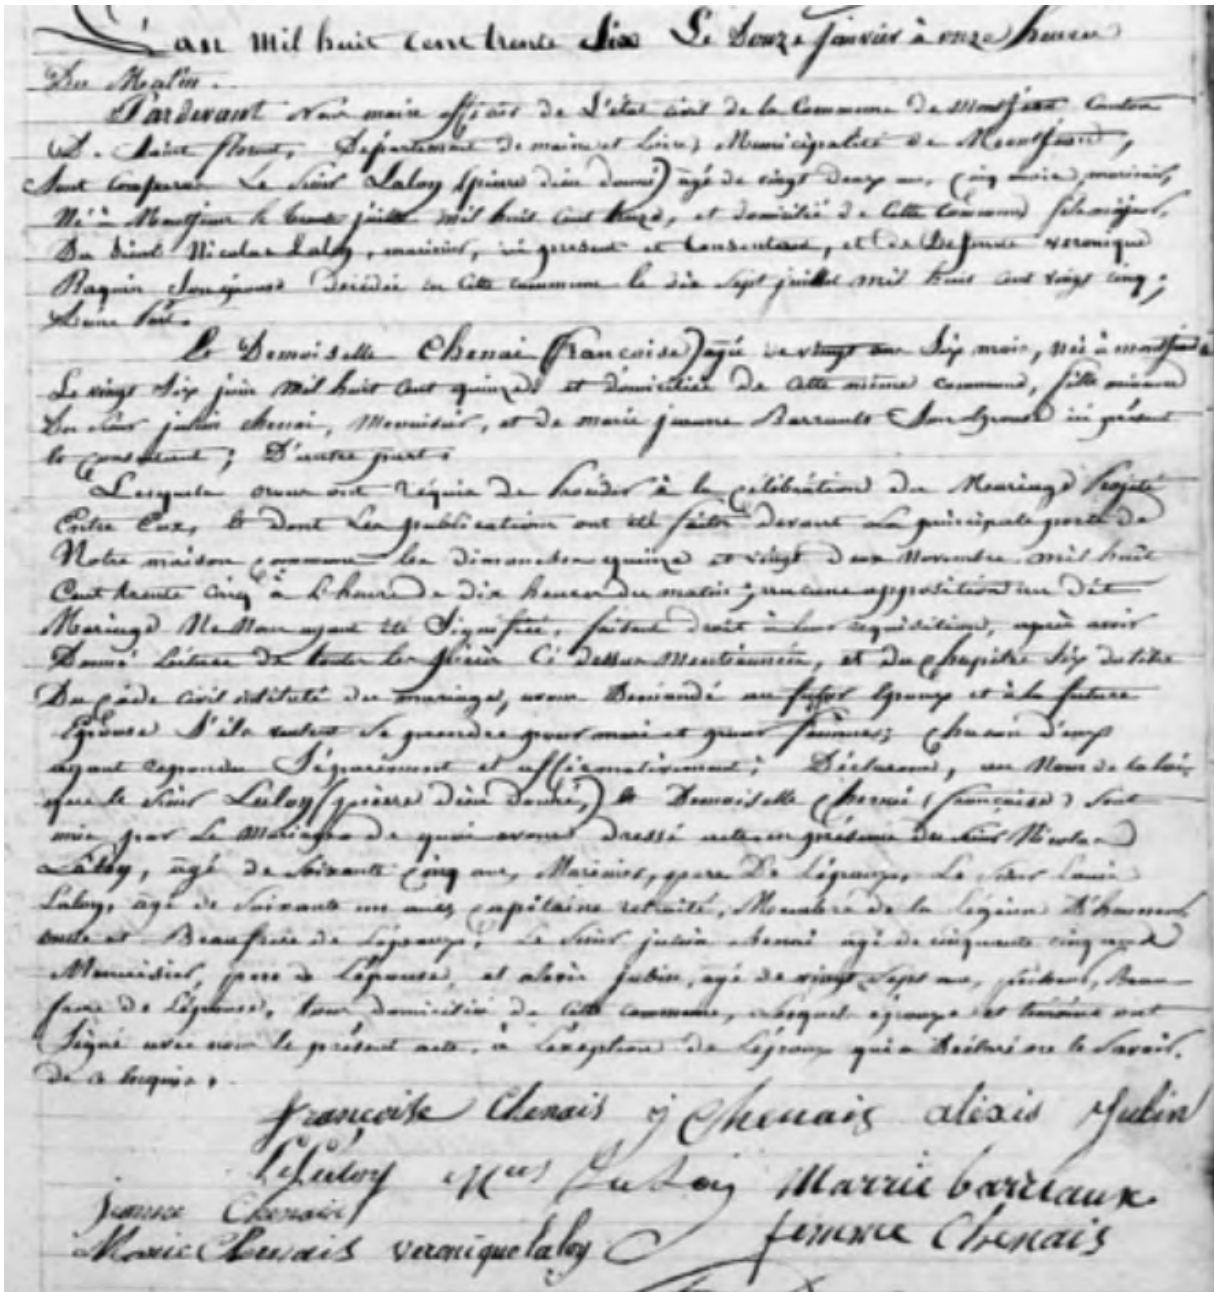 L'an mil huit cent trente Six Le Douze Janvier à onze heures
Du Matin.
Pardevant Nous maire officier de L'état civil de la Commune de Montjean Canton
De Saint florent, Département de maine et Loire, Municipalité de Montjean,
Sont comparus Le Sieur Laloy (pierre dieu donné) âgé de vingt deux ans, cinq mois, marinier,
Né à Montjean le trente juillet mil huit cent treize, et domicilié de cette commune fils majeur,
Du Sieur Nicolas Laloy, marinier, ici present et Consentant, et de Defunte veronique
Raguin Son épouse Décédée en cette commune le dix Sept juillet mil huit cent vingt cinq;
D'une Part.
Et Demoiselle Chenai (françoise) agée de vingt ans Six mois, née à montjean
Le vingt Six juin mil huit cent quinze et domiciliée de cette même commune, fille mineure
Du Sieur julien chenai, Menuisier, et de marie jeanne Barrault Son Epouse ici présent
et consentant; D'autre part.
Lesquels nous ont réquis de Procéder à la célébration du Mariage Projeté
Entre Eux, et dont Les publications ont été faites devant La principale porte de
Notre maison commune les dimanches quinze et vingt deux Novembre mil huit
Cent trente cinq à L'heure de dix heures du matin; aucune opposition au dit
Mariage Ne Nous ayant été Signifiée, faisant droit à leur requisition, après avoir
Donné lecture de toutes les pièces Ci dessus Mentionnées, et du chapitre Six du titre
Du code civil intitulé du mariage, avons Demandé au futur Epoux et à la future
Epouse S'ils veulent Se prendre pour mari et pour femme; chacun d'eux
ayant repondu Séparément et affirmativement; Déclarons, au Nom de la loi
que le Sieur Laloy (pierre dieu donné,) et Demoiselle Chenai (françoise) Sont
unis par Le Mariage de quoi avons dressé acte en présence du Sieur Nicolas
Laloy, âgé de Soixante cinq ans, Marinier, pere De L'épouxe, Le Sieur Louis
Laloy, âgé de Soixante un ans, capitaine retraité, Membre de la Légion D'honneur
oncle et Beaufrère de L'épouxe, Le Sieur julien chenai agé de cinquante cinq ans
Menuisier, pere de L'épouse, et alexis jubin, agé de vingt Sept ans, Beau
frere de L'épouse, tous domiciliés de cette commune, Lesquels épouxe et témoins ont
Signé avec nous le présent acte, à L'exeption de L'époux qui a Déclaré ne le Savoir,
de ce enquis.
françoise Chenais j Chenais alexis Jubin
L Laloy Nas Laloy Marrie barreaux
jeanne Chenais femme Chenais
Marie Chenais veronique laloy